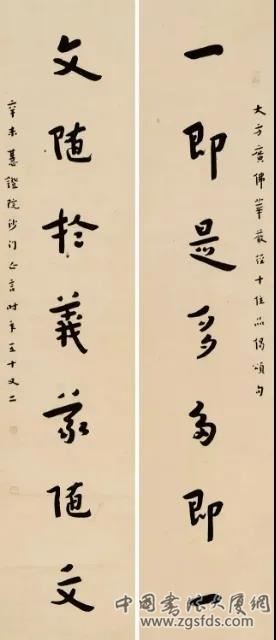 大方廣佛華嚴經十住品偈頌句
一即是多多即一
文随於義義随文
辛未慧證院沙门亡言時年五十又二
中國書法大厦網
www.zgsfds.com